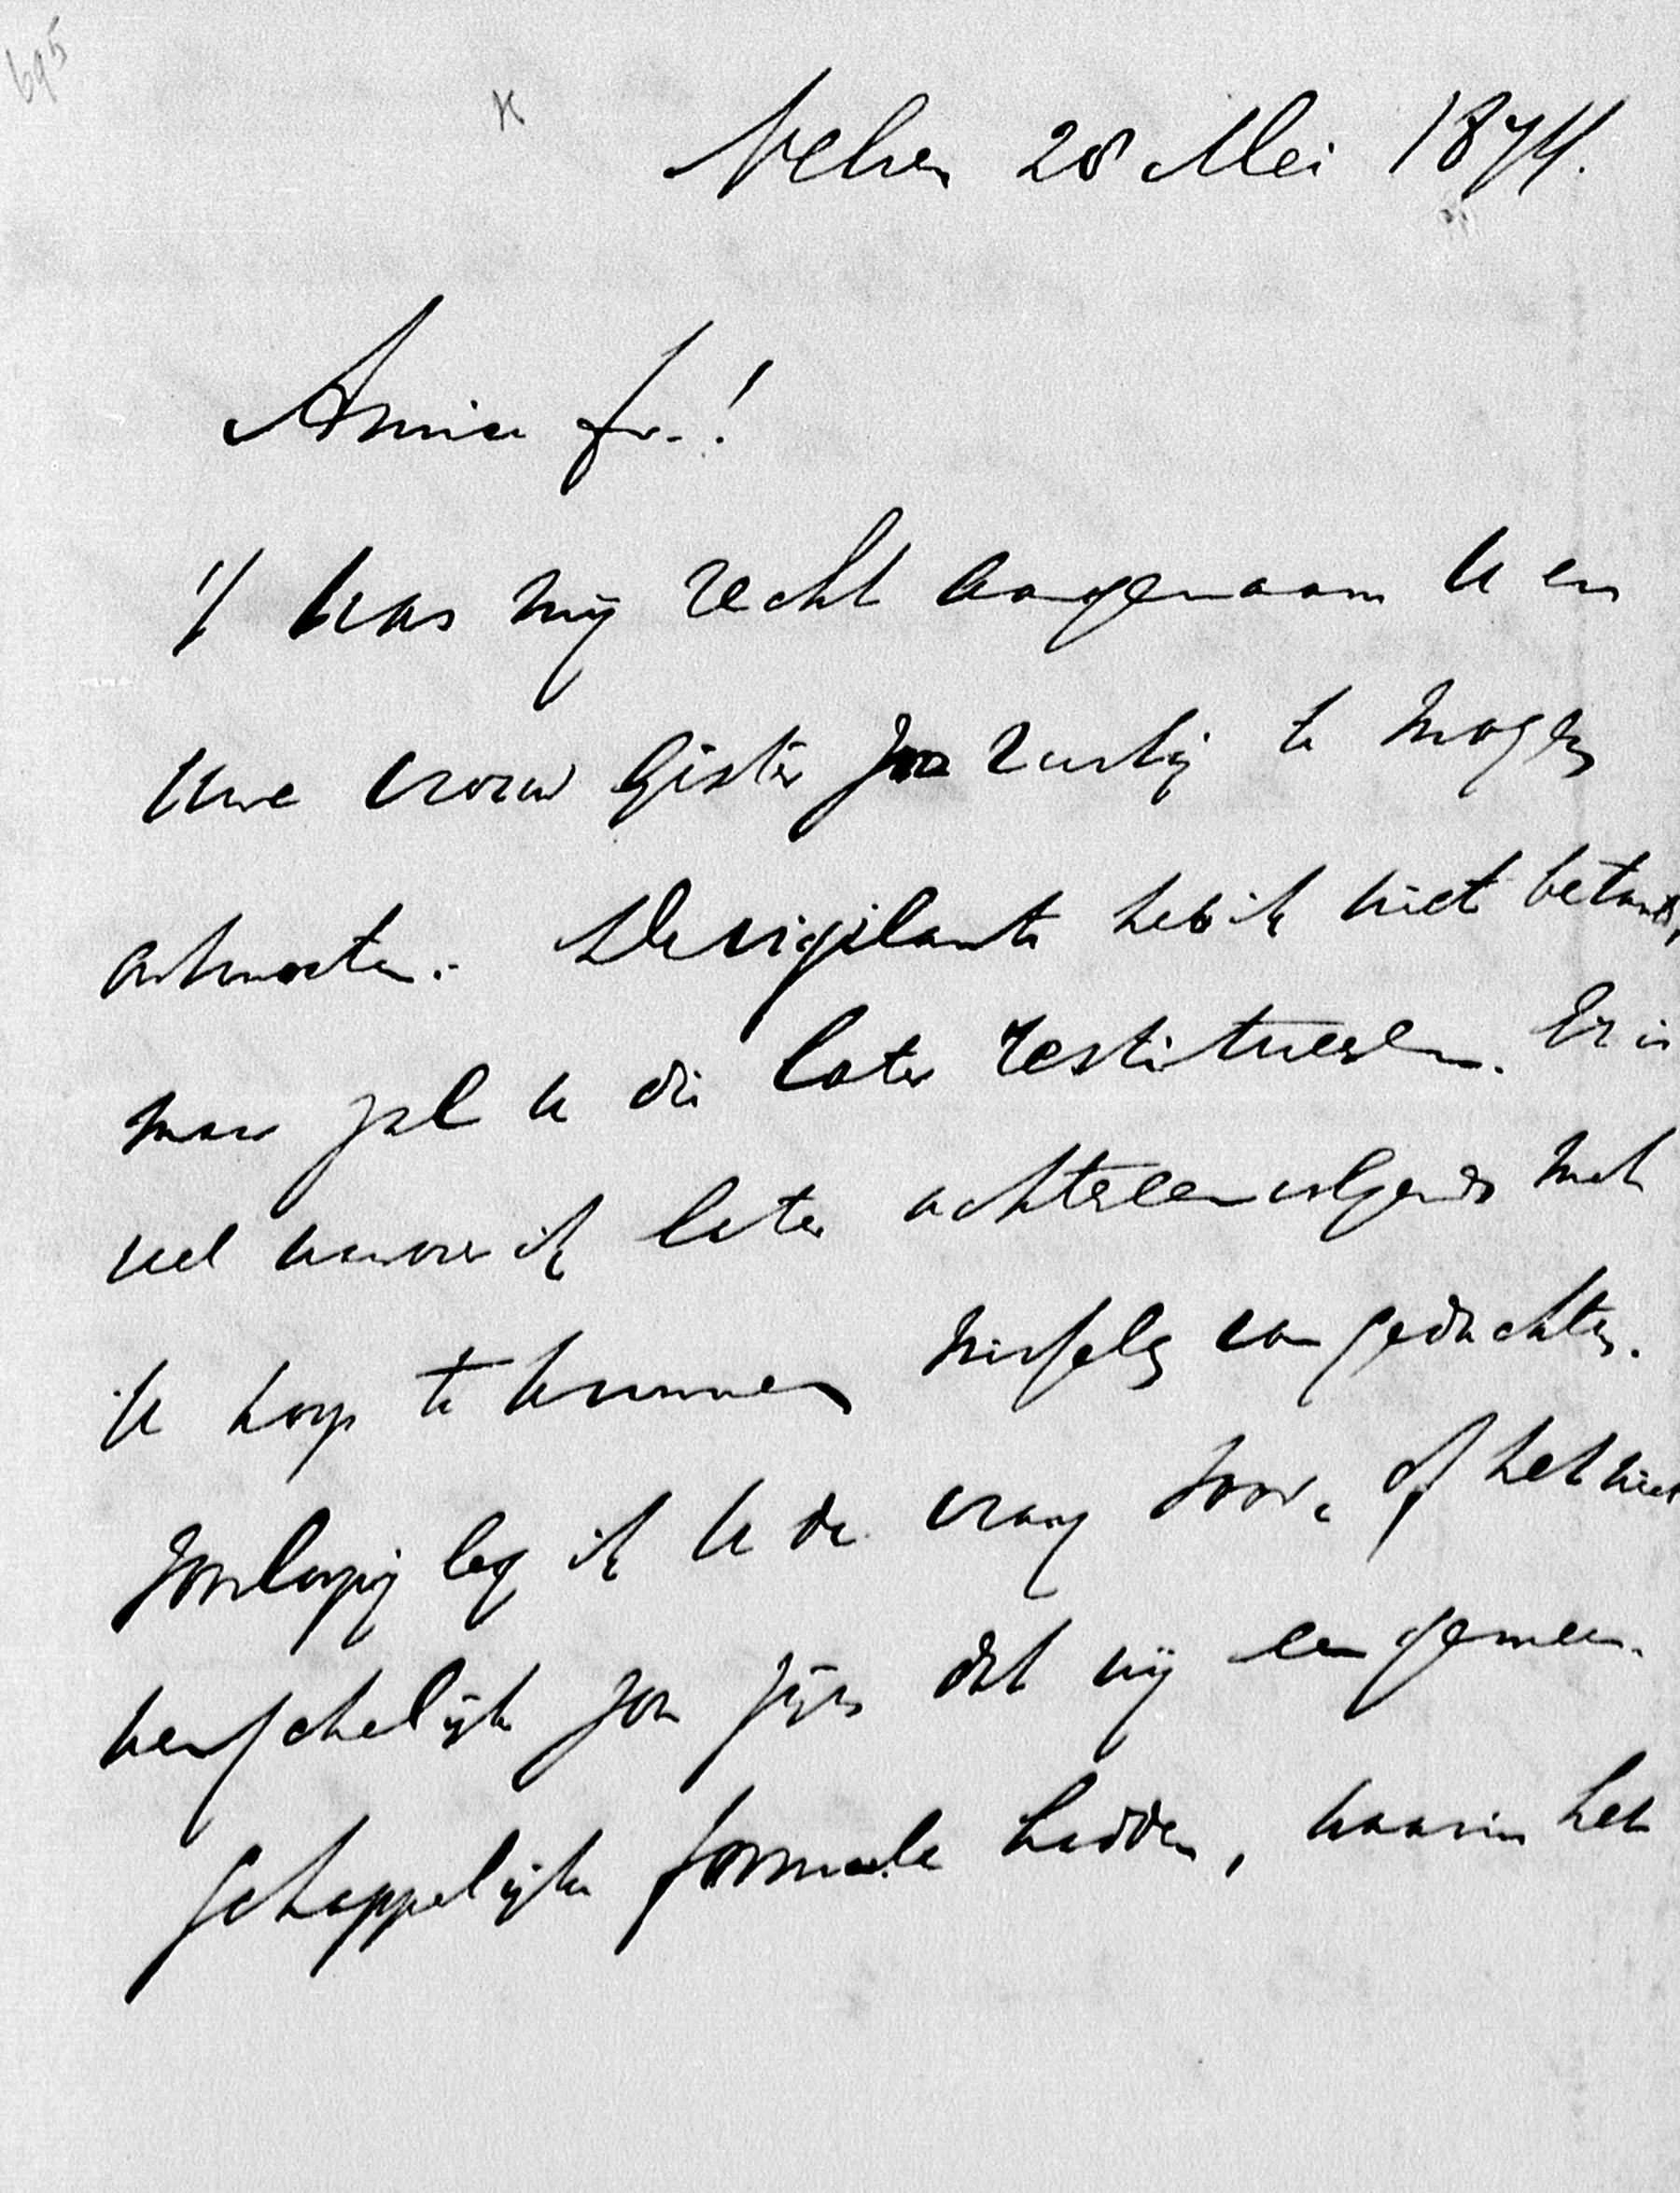 695
Velsen 28 Mei 1874.
Amice fr.!
't Was mij recht aangenaam U en
Uwe vrouw gister zoo rustig te mogen
ontmoeten. De vigilante heb ik niet betaald,
maar zal U die later restitueeren. Er is
veel waarover ik later achtereenvolgends met
U hoop te kunnen wisselen van gedachten.
Voorloopig leg ik U de vraag voor, of het niet
wenschelijk zou zijn dat wij een gemeen-
schappelijke formule hadden, waarin het